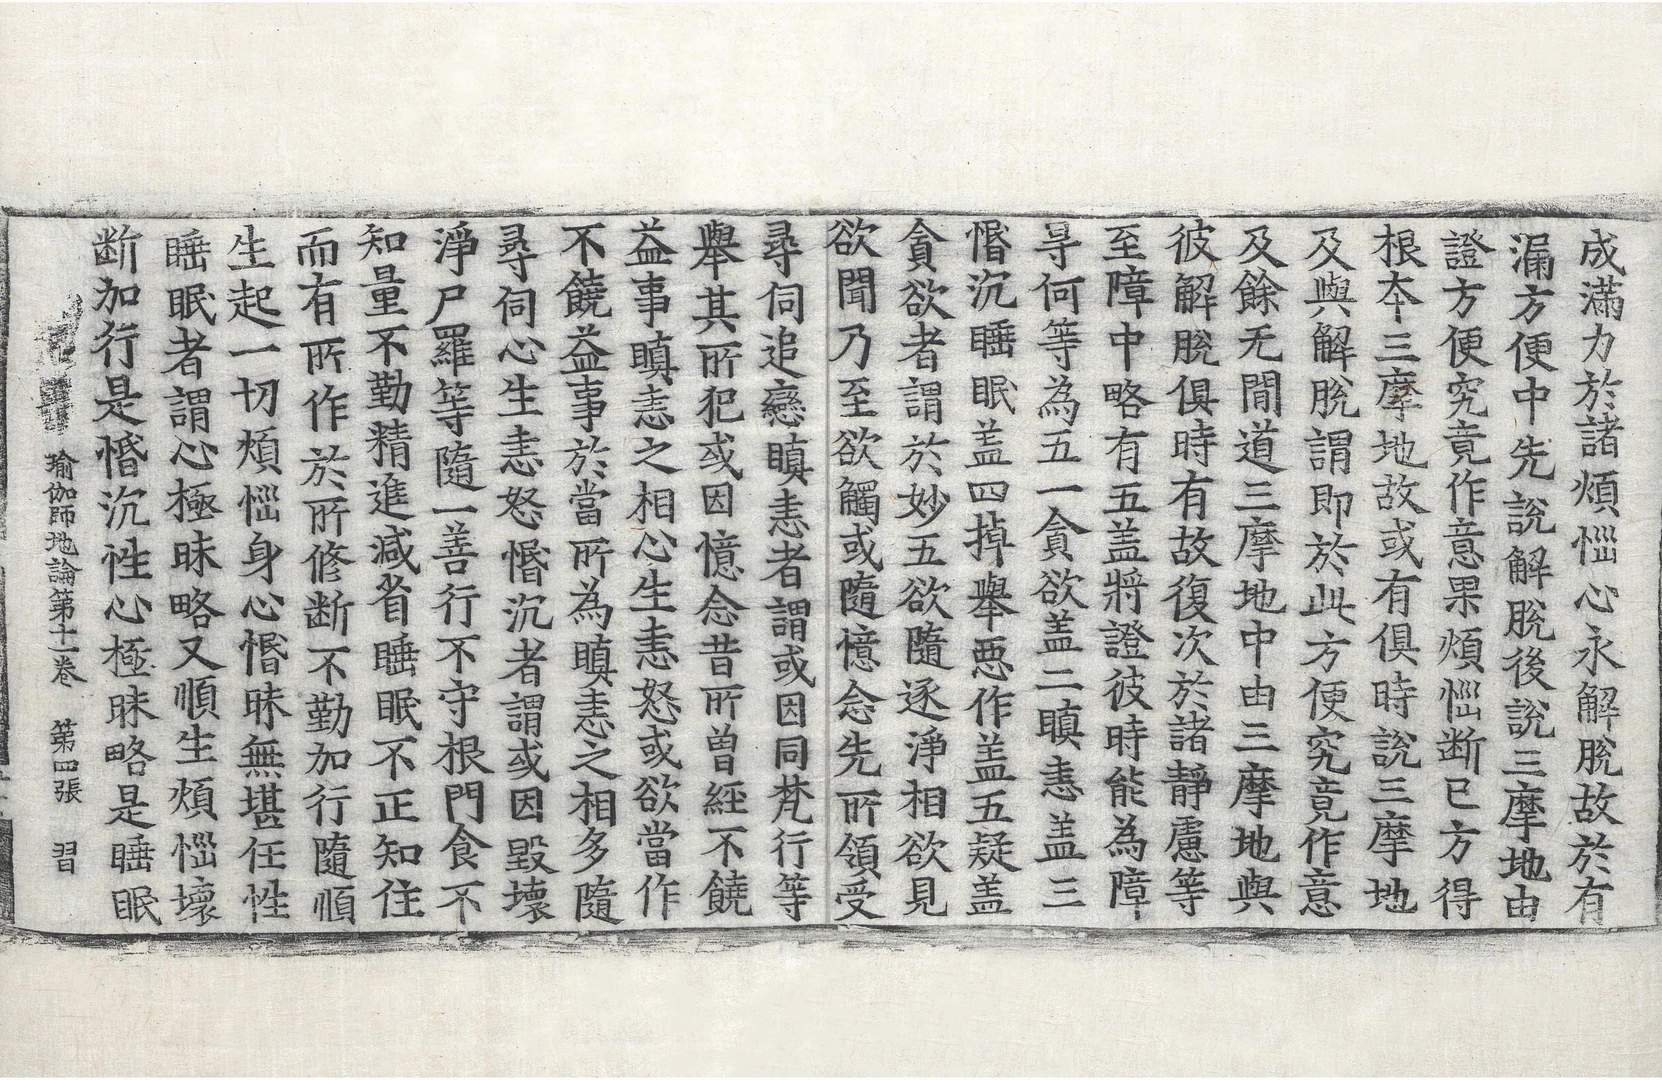 成滿力於諸煩惱心永解脫故於有
漏方便中先說解脫後說三摩地由
證方便究竟作意果煩惱断已方得
根夲三摩地故或有俱時說三摩地
及與解脫謂即於此方便究竟作意
及餘无閒道三摩地中由三摩地與
彼解脫俱時有故復次於諸靜慮等
至障中略有五盖將證彼時能為障
㝵何等為五一貪欲盖二瞋恚盖三
惛沉睡眠盖四掉舉惡作盖五疑盖
貪欲者謂於妙五欲隨逐淨相欲見
欲聞乃至欲觸或隨憶念先所領受
尋伺追戀瞋恚者謂或因同梵行等
舉其所犯或因憶念昔所曾經不饒
益事瞋恚之相心生恚怒或欲當作
不饒益事於當所為瞋恚之相多隨
尋伺心生恚怒惛沉者謂或因毀壞
淨尸羅等隨一善行不守根門食不
知量不勤精進減省睡眠不正知住
而有所作於所修断不勤加行隨順
生起一切煩惱身心惛昧無堪任性
睡眠者謂心極昧略又順生煩惱壞
断加行是惛沉性心極昧略是睡眠
瑜伽師地論第十一卷 第四張 習